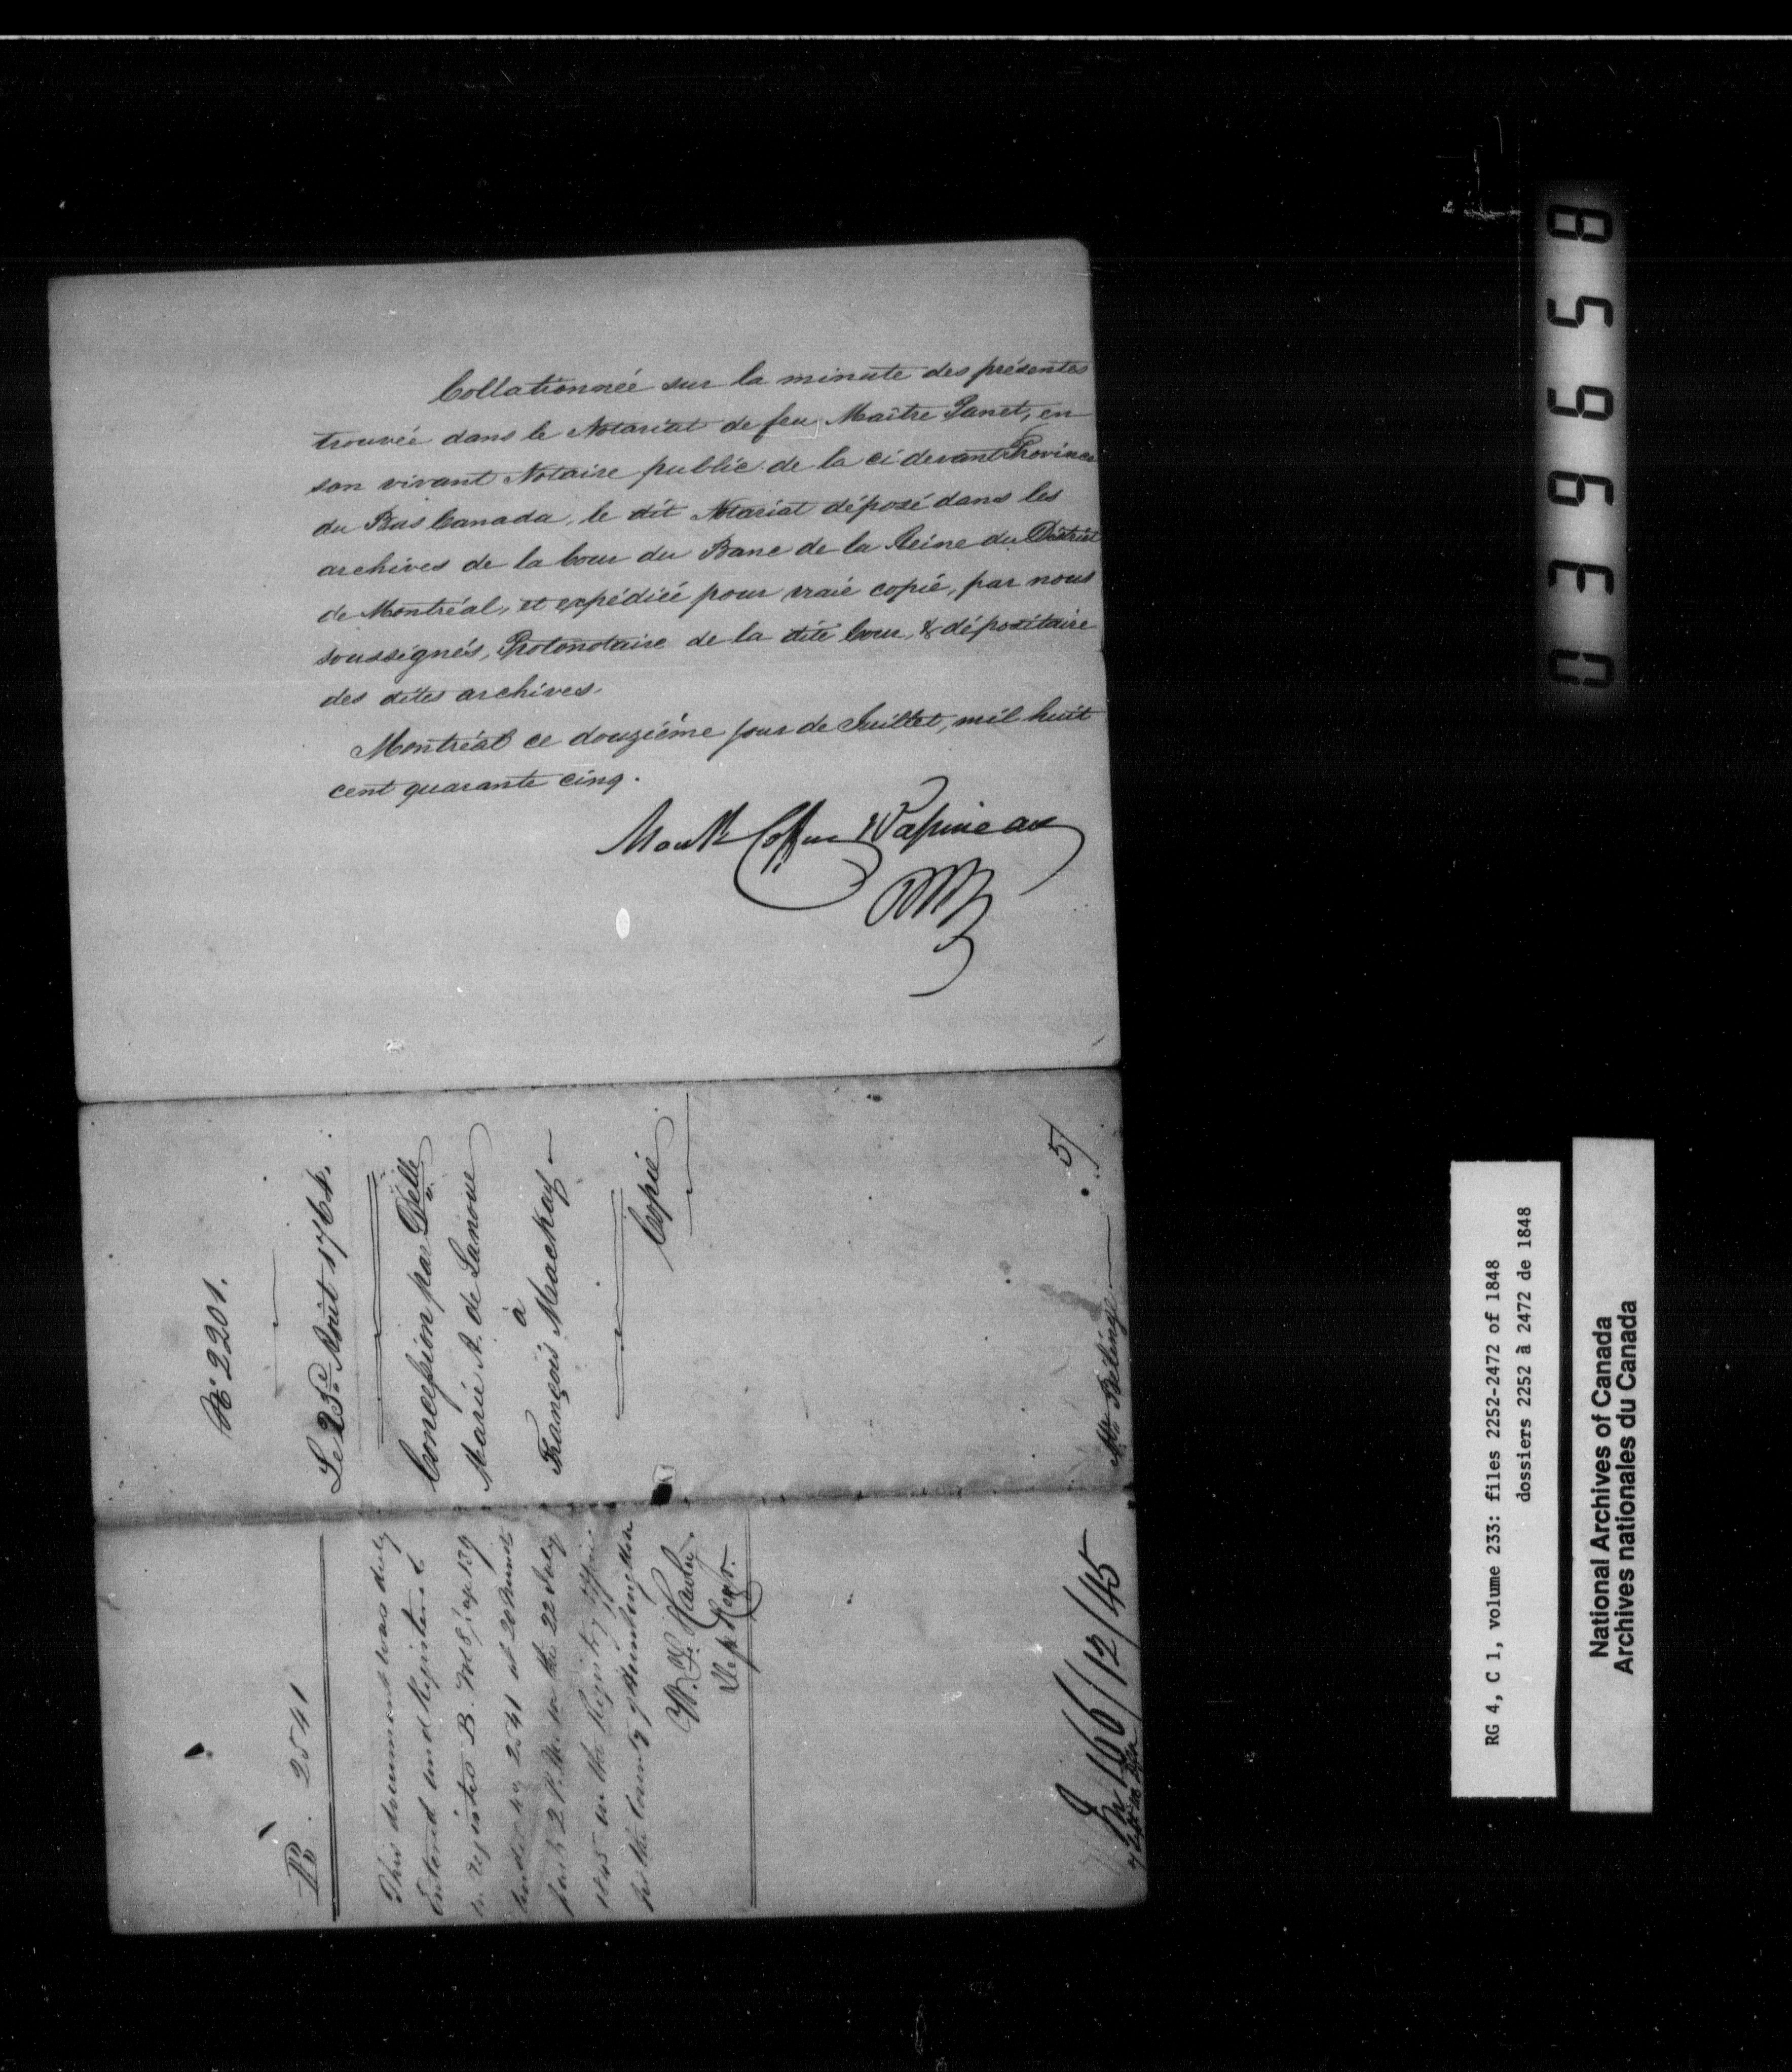 Collationnée sur la minute des présentes
trouvée dans le Notariat de feu Maître Panet, en
son vivant Notaire public de la ci devant Province
du Bas Canada, le dit Notariat déposé dans les
archives de la Cour du Banc de la Reine du District
de Montréal, et expédiée pour vraie copie, par nous
soussignés, Protonotaire de la dite Cour, & dépositaire
des dites archives.
Montréal ce douzième jour de Juillet, mil huit
cent quarante cinq.
Monk Coffin & Papineau
No. 2201.
Le 25e. Août 1764.
Concession par Delle
Marie A. de Lanoue
à
François Mackay
Copie
5/
B. 2541
This document was duly
Entered and Registered
in registre B. Vol 8, 139
under No 2541 at 20 minutes
past 2 P. M. on the 22 July
1845 in the Registry Office
for the County of Huntingdon
W. F. Hawley
Dep Regr.
166/12/45
039658
RG 4, C 1, volume 233: files 2252-2472 of 1848
dossiers 2252 à 2472 de 1848
National Archives of Canada
Archives nationales du Canada